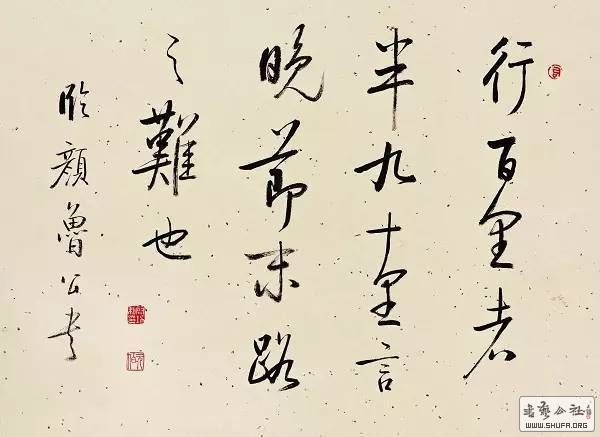 行百里者
半九十里言
晚節末路
之難也
臨顏魯公書
書藝公社
WWW.SHUFA.ORG